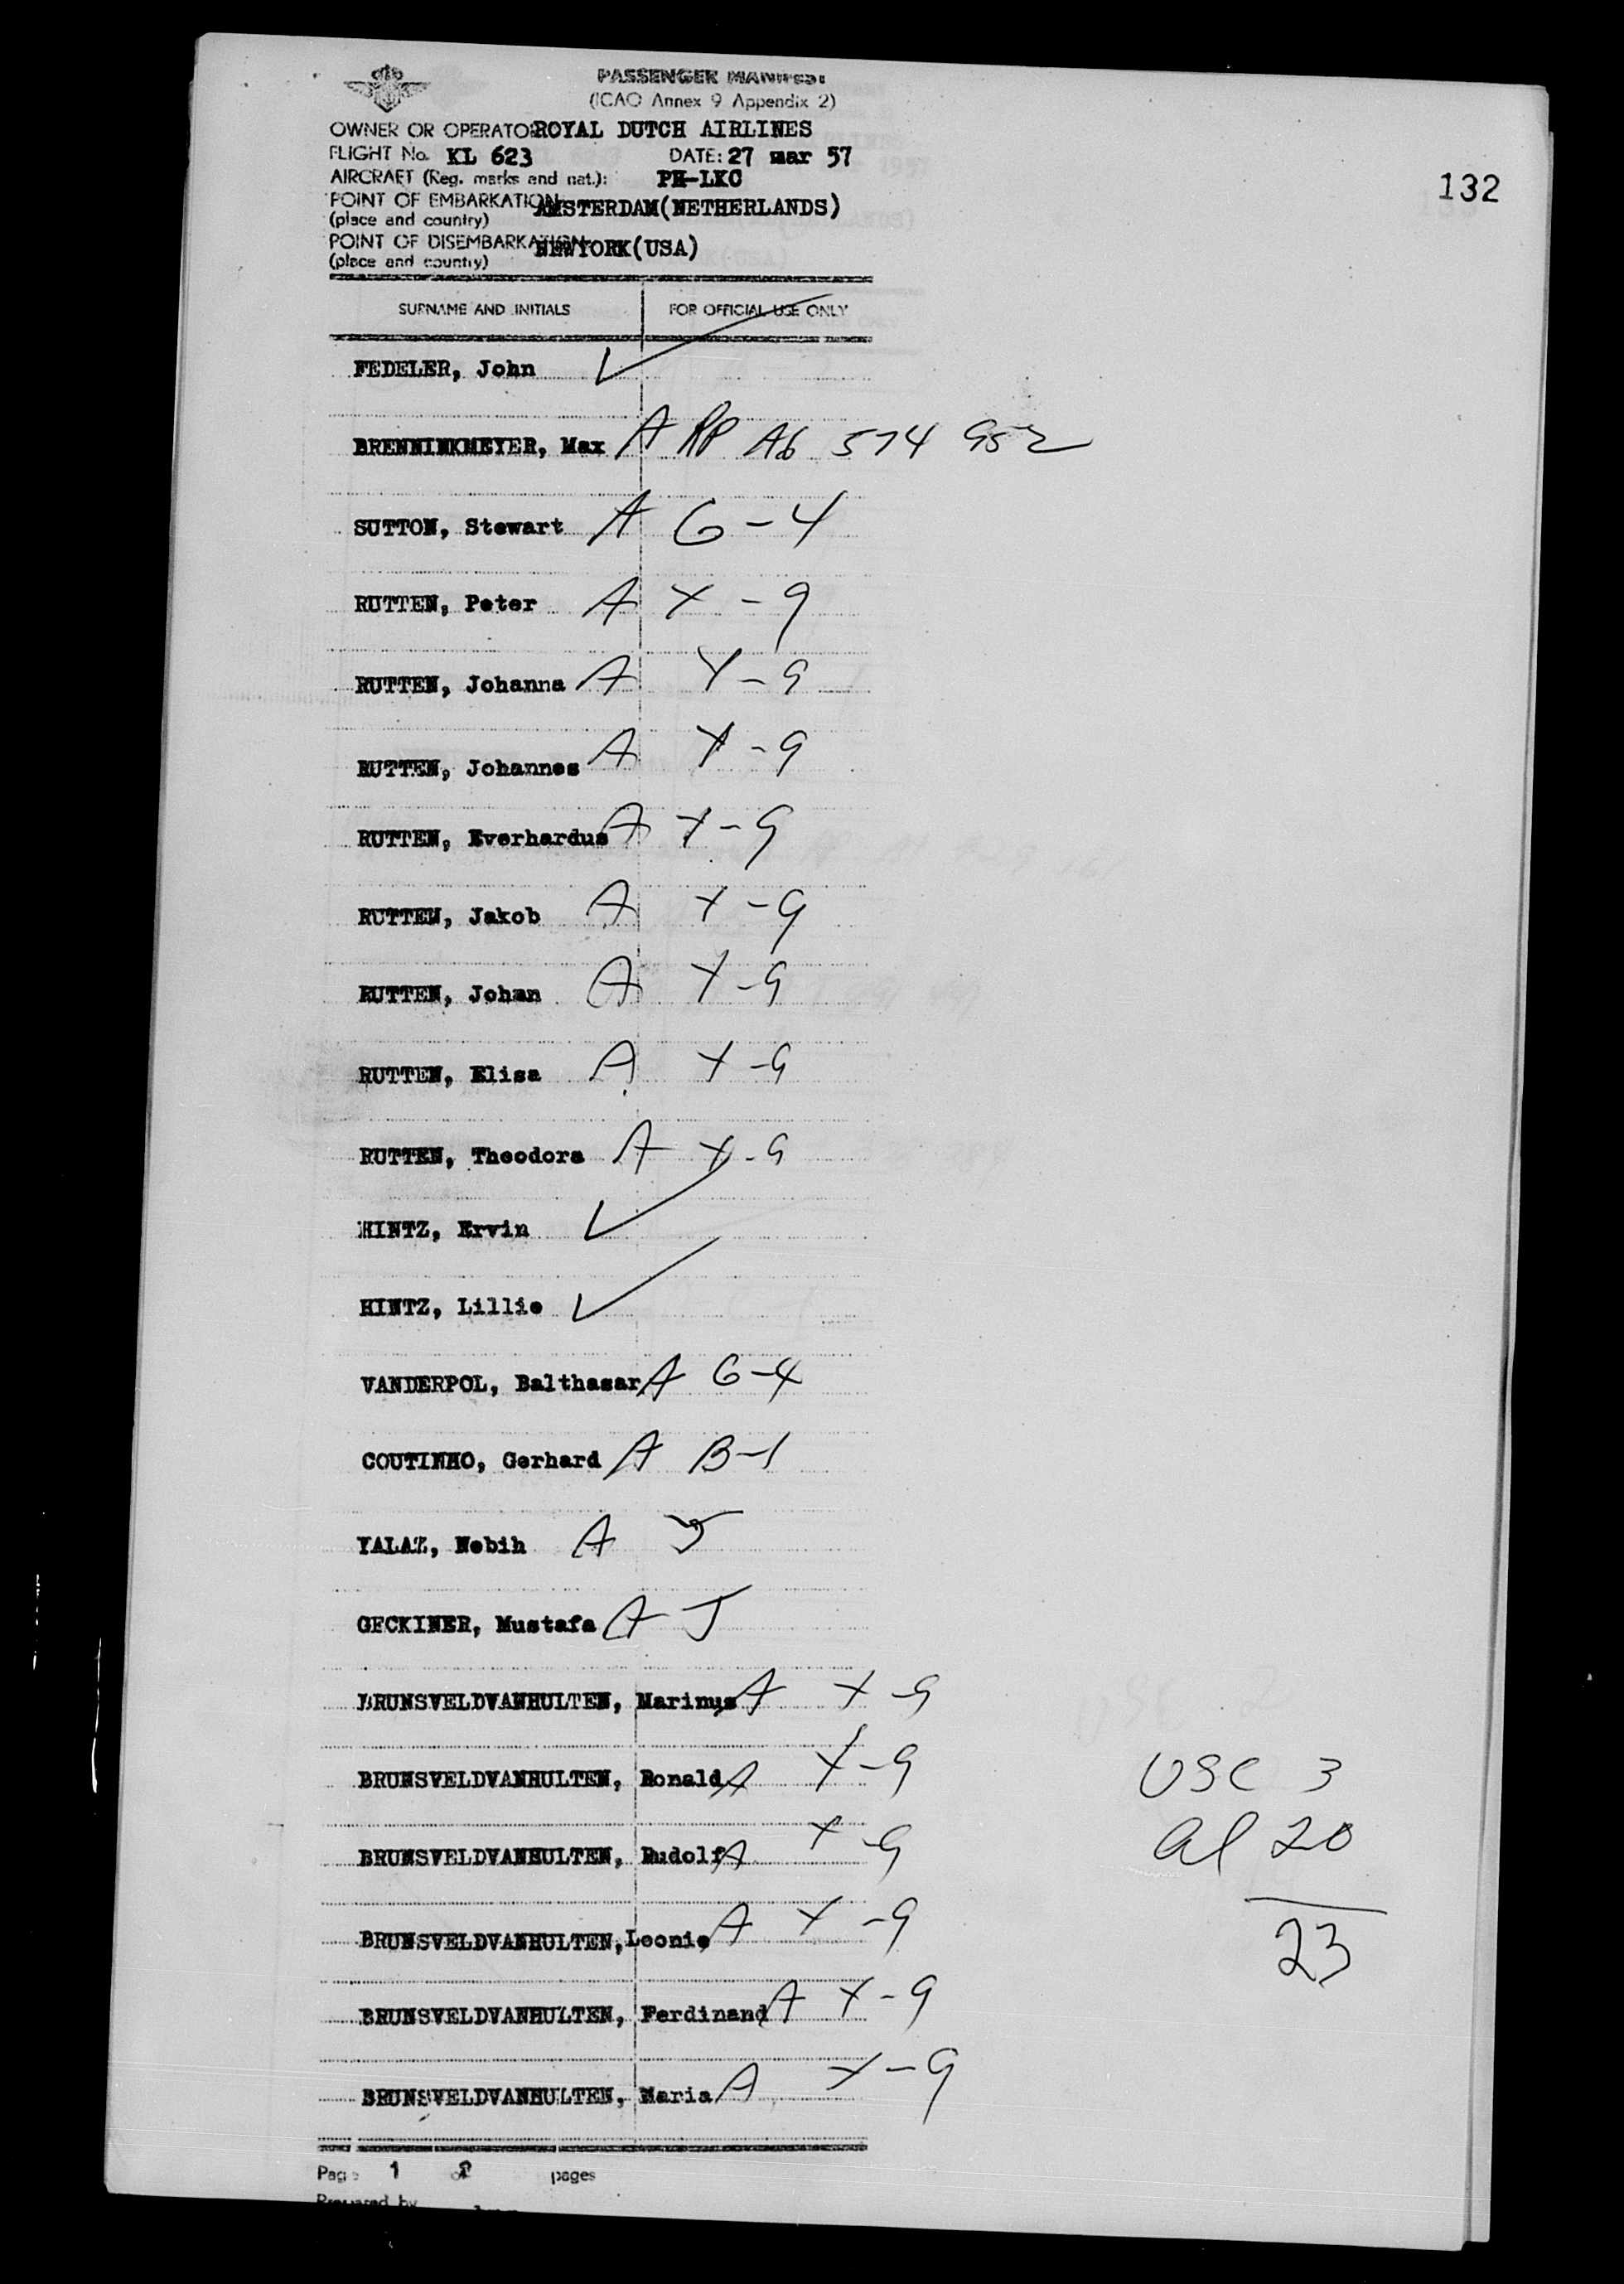 PASSENGER MANIFEST
(ICAO Annex 9 Appendix 2)
OWNER OR OPERATOR ROYAL DUTCH AIRLINES
FLIGHT No. KL 623 DATE: 27 mar 57
AIRCRAFT (Reg. marks and nat.): PH-LKC
132
POINT OF EMBARKATION AMSTERDAM(NETHERLANDS)
(place and country)
POINT OF DISEMBARKATION NEWYORK(USA)
(place and country)
SURNAME AND INITIALS FOR OFFICIAL USE ONLY
FEDELER, John
BRENNINKMEYER, Max A RP A6 574 952
SUTTON, Stewart A G-4
RUTTEN, Peter A X-9
RUTTEN, Johanna A X-9
RUTTEN, Johannes A X-9
RUTTEN, Everhardus A X-9
RUTTEN, Jakob A X-9
RUTTEN, Johan A X-9
RUTTEN, Elisa A X-9
RUTTEN, Theodora A X-9
HINTZ, Ervin
HINTZ, Lillie
VANDERPOL, Balthasar A G-4
COUTINHO, Gerhard A B-1
YALAZ, Nebih A J
GECKINER, Mustafa A J
BRUNSVELDVANHULTEN, Marinus A X-9
BRUNSVELDVANHULTEN, Ronald A X-9
USC 3
BRUNSVELDVANHULTEN, Rudolf A X-9
al 20
BRUNSVELDVANHULTEN, Leonie A X-9
23
BRUNSVELDVANHULTEN, Ferdinand A X-9
BRUNSVELDVANHULTEN, Maria A X-9
Page 1 of 2 pages
Prepared by